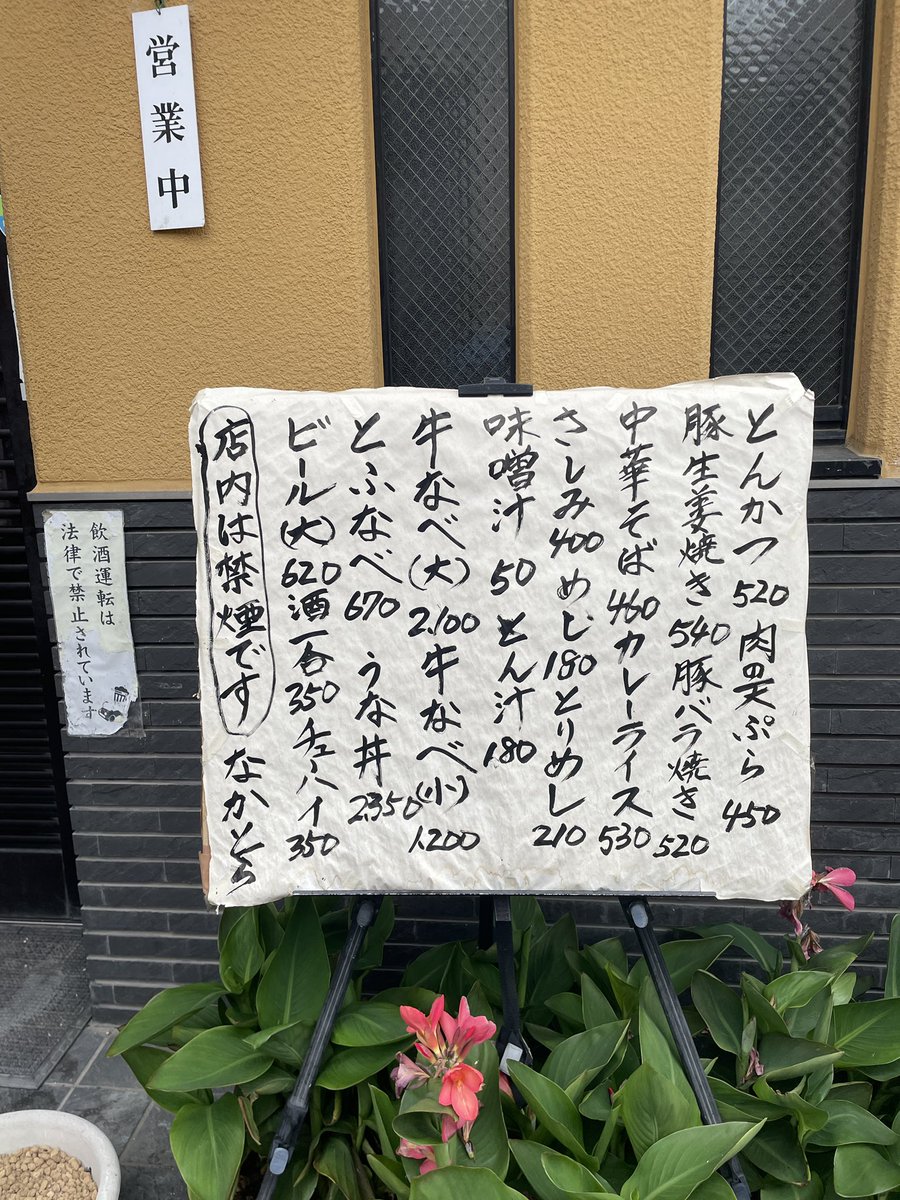 営業中
とんかつ 520 肉の天ぷら 450
豚生姜焼き 540 豚バラ焼き 520
中華そば 460 カレーライス 530
さしみ 400 めし 180 とりめし 210
味噌汁 50 とん汁 180
牛なべ(大) 2.100 牛なべ(小) 1.200
とふなべ 670 うな丼 2350
ビール(大) 620 酒一合 350 チューハイ 350
店内は禁煙です なかとら
飲酒運転は
法律で禁止されています